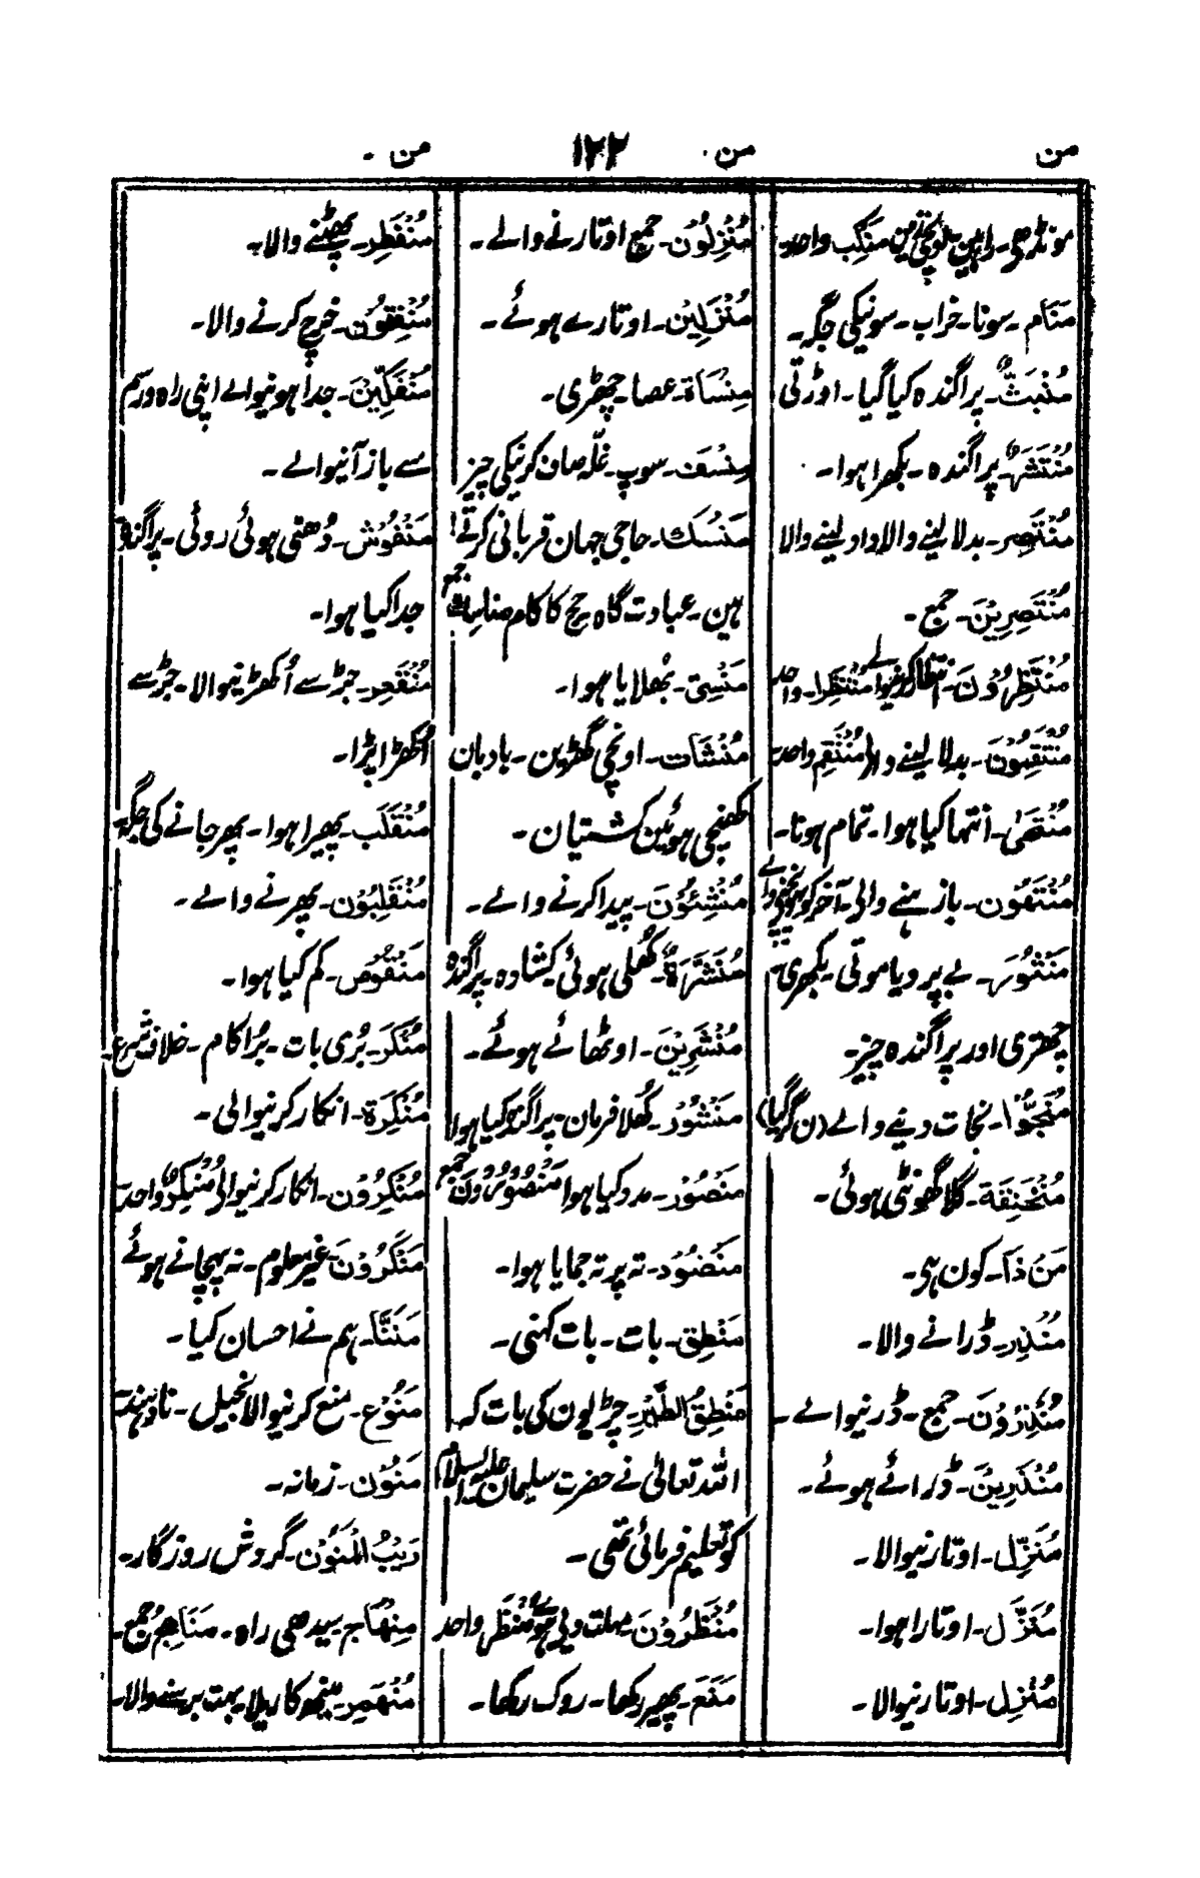 من
من
۱۲۲
من
مونڈھی۔ راہین مَنکِب واحد
مَنَام۔ سونا۔ خراب۔ سونیکی جگہ۔
مُنْبَثٌّ۔ پراگندہ کیا گیا۔ اوڑتی
مُنْتَشِرٌ۔ پراگندہ۔ بکھرا ہوا۔
مُنْتَصِر۔ بدلا لینے والا داد لینے والا
مُنْتَصِرِیْنَ۔ جمع۔
مُنْتَظِرُوْنَ۔ مُنْتَظِر۔ واحد
مُنْتَقِمُوْنَ۔ بدلا لینے والے مُنْتَقِم واحد
مُنْتَهٰی۔ انتہا کیا ہوا۔ تمام ہونا۔
مُنْتَهُوْن۔ باز رہنے والی۔ آخر کو پہونچنے والے
مَنْثُوْر۔ بے پرویا موتی۔ بکھری
چھتری اور پراگندہ چیز۔
مُنَجُّوْا۔ نجات دینے والے (ن گر گیا)
مُنْخَنِقَة۔ گلا گھونٹی ہوئی۔
مَنْ ذَا۔ کون ہی۔
مُنْذِر۔ ڈرانے والا۔
مُنْذِرُوْنَ۔ جمع۔ ڈرنیوالے۔
مُنْذَرِیْنَ۔ ڈرائے ہوئے۔
مُنَزِّل۔ اوتارنیوالا۔
مُنَزَّل۔ اوتارا ہوا۔
مُنْزِل۔ اوتارنیوالا۔
مُنْزِلُوْن۔ جمع اوتارنے والے۔
مُنْزَلِیْن۔ اوتارے ہوئے۔
مِنْسَاۃ۔ عصا۔ چھڑی۔
مِنْسَف۔ سوپ۔ غلّہ صاف کرنیکی چیز
مَنْسَك۔ حاجی جہان قربانی کرتے
ہین۔ عبادت گاہ حج کا کام مناسك جمع
مَنْسِیّ۔ بُھلایا ہوا۔
مُنْشَآت۔ اونچی گھڑین۔ بادبان
کھنچی ہوئین کشتیان۔
مُنْشِئُوْنَ۔ پیدا کرنے والے۔
مُنَشَّرَۃٌ۔ کُھلی ہوئی کشادہ۔ پراگندہ
مُنْشَرِیْنَ۔ اوٹھائے ہوئے۔
مَنْشُوْر۔ کُھلا فرمان۔ پراگندہ کیا ہوا
مَنْصُوْر۔ مدد کیا ہوا مَنْصُوْرُوْنَ جمع
مَنْضُوْد۔ تہ پر تہ جمایا ہوا۔
مَنْطِق۔ بات۔ بات کہنی۔
مَنْطِقُ الطَّیْر۔ چڑیون کی بات کہ
اللہ تعالیٰ نے حضرت سلیمان علیہ السلام
کو تعلیم فرمائی تھی۔
مُنْظَرُوْنَ۔ مہلت دیے ہوئے مُنْظَر واحد
مَنَعَ۔ پھیر رکھا۔ روک رکھا۔
مُنْفَطِر۔ پھٹنے والا۔
مُنْفِقُوْن۔ خرچ کرنے والا۔
مُنْفَكِّیْنَ۔ جدا ہونیوالے اپنی راہ ورسم
سے باز آنیوالے۔
مَنْفُوْش۔ دُھنی ہوئی روئی۔ پراگندہ
جدا کیا ہوا۔
مُنْقَعِر۔ جڑ سے اُکھڑنیوالا۔ جڑ سے
اُکھڑا پڑا۔
مُنْقَلَب۔ پھیرا ہوا۔ پھر جانے کی جگہ
مُنْقَلِبُوْن۔ پھرنے والے۔
مَنْقُوْص۔ کم کیا ہوا۔
مُنْكَر۔ بُری بات۔ بُرا کام۔ خلاف شرع۔
مُنْكِرَۃ۔ انکار کرنیوالی۔
مُنْكِرُوْن۔ انکار کرنیوالے مُنْكِرٌ واحد
مُنْكَرُوْنَ۔ غیر معلوم۔ نہ پہچانے ہوئے
مَنَنَّا۔ ہم نے احسان کیا۔
مَنُوْع۔ منع کرنیوالا بخیل۔ نادہند
مَنُوْن۔ زمانہ۔
رَیْبُ الْمَنُوْن۔ گردش روزگار۔
مِنْهَاج۔ سیدھی راہ۔ مَنَاهِجُ جمع۔
مُنْهَمِر۔ مینھ کا ریلا۔ بہت برسنے والا۔